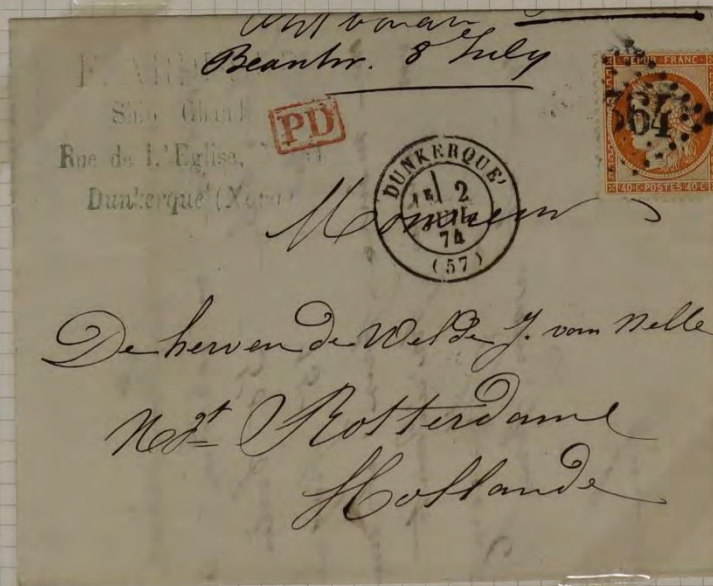 Beantw. 8 July
Ship Chand
Rue de L'Eglise,
Dunkerque (Nord)
PD
DUNKERQUE
2
JUIL
74
(57)
REPUB · FRANC
64
40·C·POSTES·40·C
Monsieur
De heer en de Welde J. van Nelle
Rotterdam
Hollande